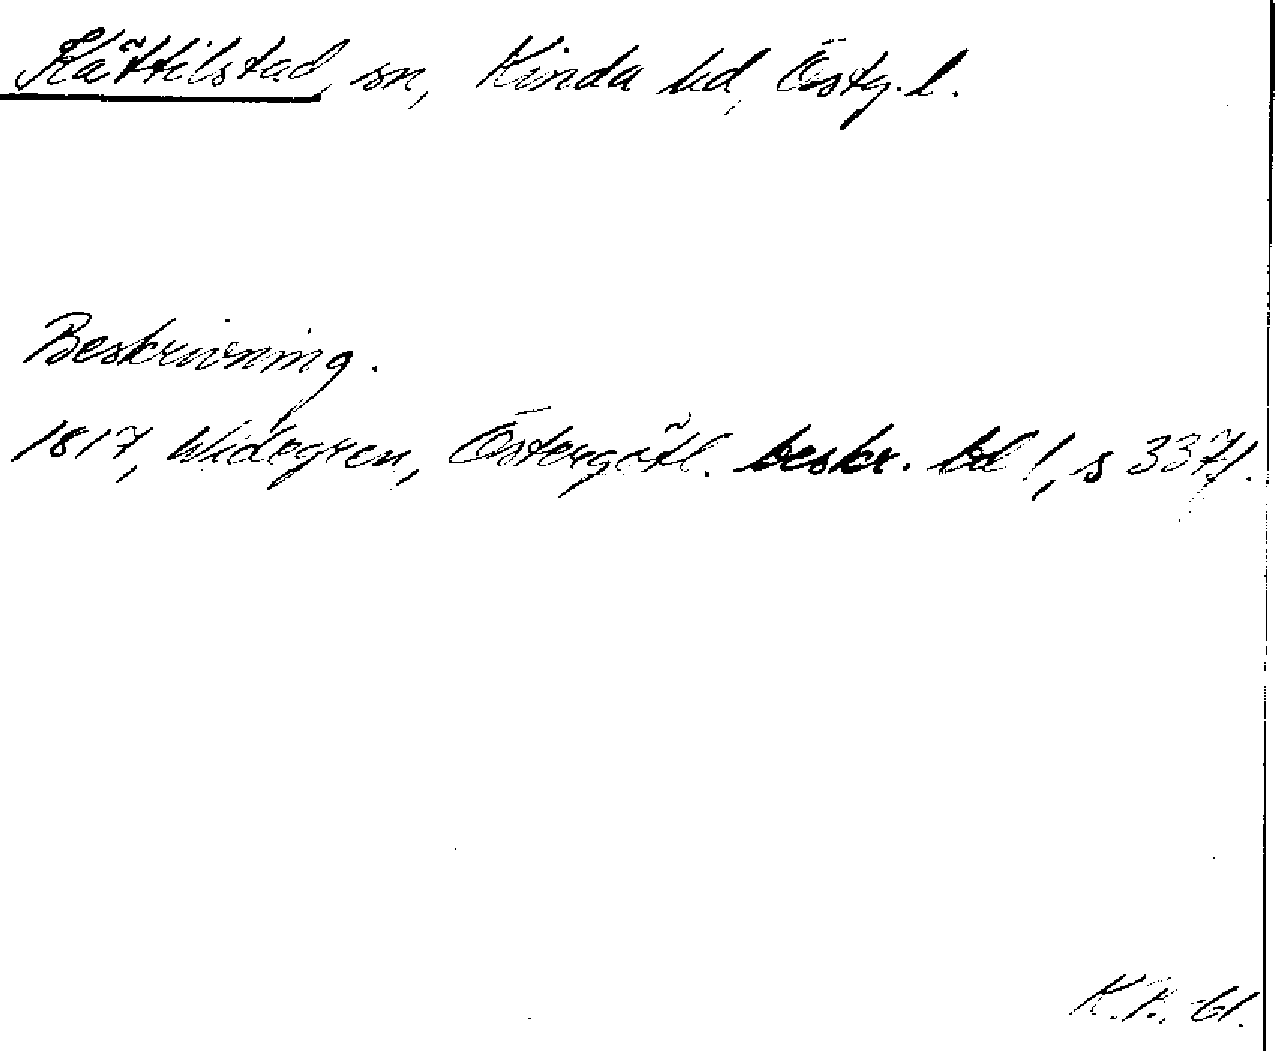 Kättilstad, sn, Kinda hd, Östg. l.
Beskrivning.
1817, Widegren, Östergötl. beskr. bd 1, s 337f.
K.P. 61.